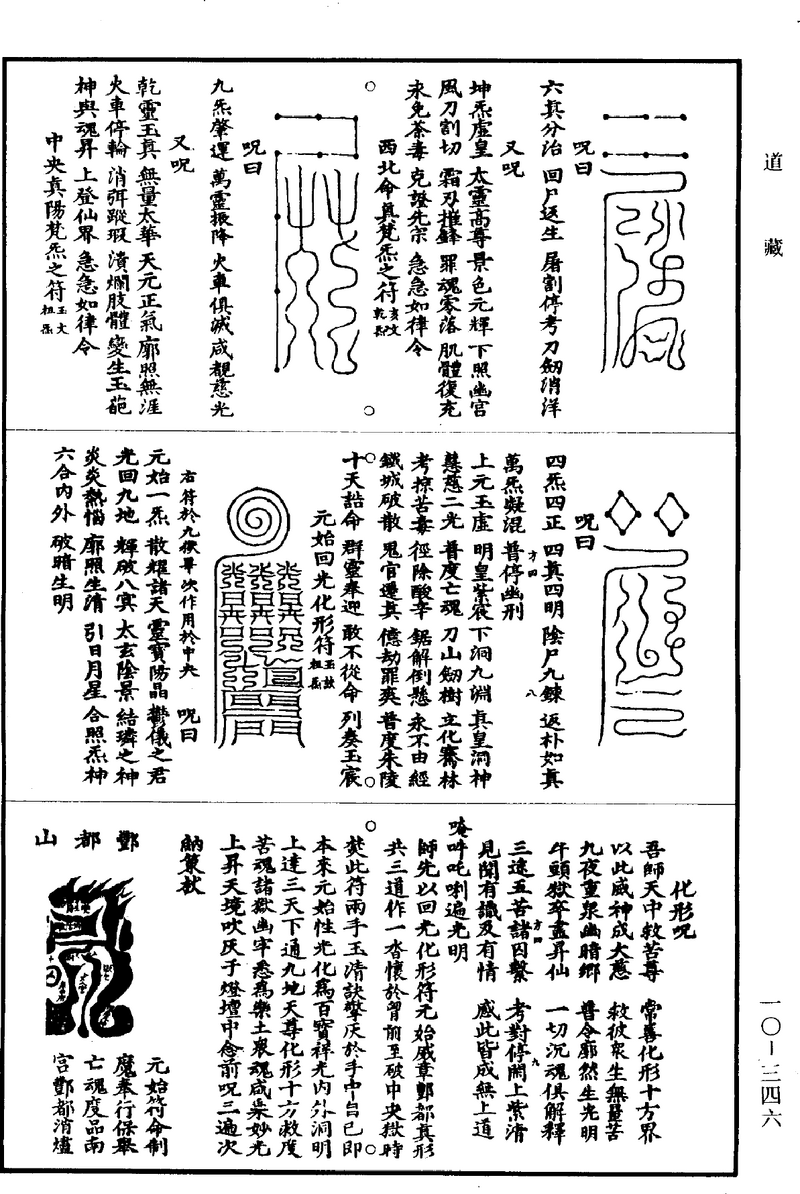 道藏
呪曰
六真分治 回尸返生 屠割停考 刀劒消洋
又呪
坤炁虛皇 太靈高尊 景色元輝 下照幽宮
風刀割切 霜刃摧鋒 罪魂零落 肌體復充
永免荼毒 克證先宗 急急如律令
西北命真梵炁之符
呪曰
九炁肇運 萬靈振降 火車俱滅 咸覩慈光
又呪
乾靈玉真 無量太華 天元正氣 廓照無涯
火車停輪 消弭蹤瑕 潰爛肢體 變生玉葩
神與魂昇 上登仙界 急急如律令
中央真陽梵炁之符
呪曰
四炁四正 四真四明 陰尸九鍊 返朴如真
萬炁凝混 普停幽刑
上元玉虛 明皇紫宸 下洞九淵 真皇洞神
慧慈二光 普度亡魂 刀山劒樹 立化騫林
考掠苦毒 徑除酸辛 鋸解倒懸 永不由經
鐵城破散 鬼官遷真 億劫罪爽 普度朱陵
十天誥命 群靈奉迎 敢不從命 列奏玉宸
元始回光化形符
右符於九獄畢次作用於中央 呪曰
元始一炁 散耀諸天 靈寶陽晶 鬱儀之君
光回九地 輝破八冥 太玄陰景 結璘之神
炎炎熱惱 廓照生清 引日月星 合照炁神
六合内外 破暗生明
化形呪
吾師天中救苦尊 常善化形十方界
以此威神成大慈 救彼衆生無量苦
九夜重泉幽暗鄉 普令廓然生光明
牛頭獄卒盡昇仙 一切沉魂俱解釋
三塗五苦諸囚繫 考對停閞上紫清
見聞有識及有情 感此皆成無上道
唵吽吒唎遍光明
師先以回光化形符元始威章酆都真形
共三道作一沓懷於胷前至破中央獄時
焚此符兩手玉清訣擎灰於手中台已即
本來元始性光化爲百寶祥光内外洞明
上達三天下通九地天尊化形十方救度
苦魂諸獄幽牢悉爲樂土衆魂咸乗妙光
上昇天境吹灰于燈壇中念前呪三遍次
納策杖
酆都山
元始符命制
魔奉行保舉
亡魂度品南
宮酆都消爐
一〇—三四六